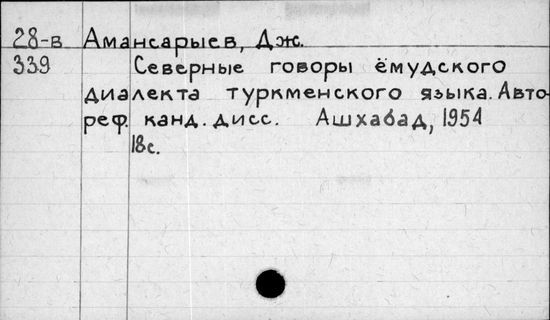 28-в Амансарыев, Дж.
339 Северные говоры ёмудского
диалекта туркменского языка. Авто-
реф. канд. дисс. Ашхабад, 1954
18с.